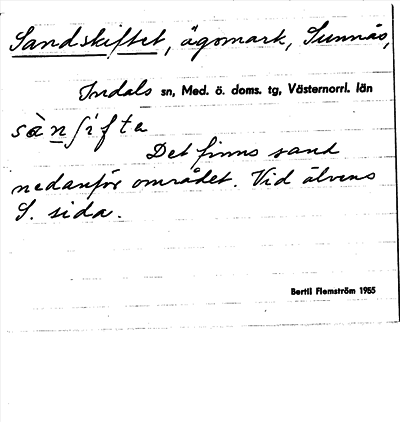 Sandskiftet, ägomark, Sunnås,
Indals sn, Med. ö. doms. tg, Västernorrl. län
sànʃífta
Det finns sand
nedanför området. Vid älvens
S. sida.
Bertil Flemström 1955